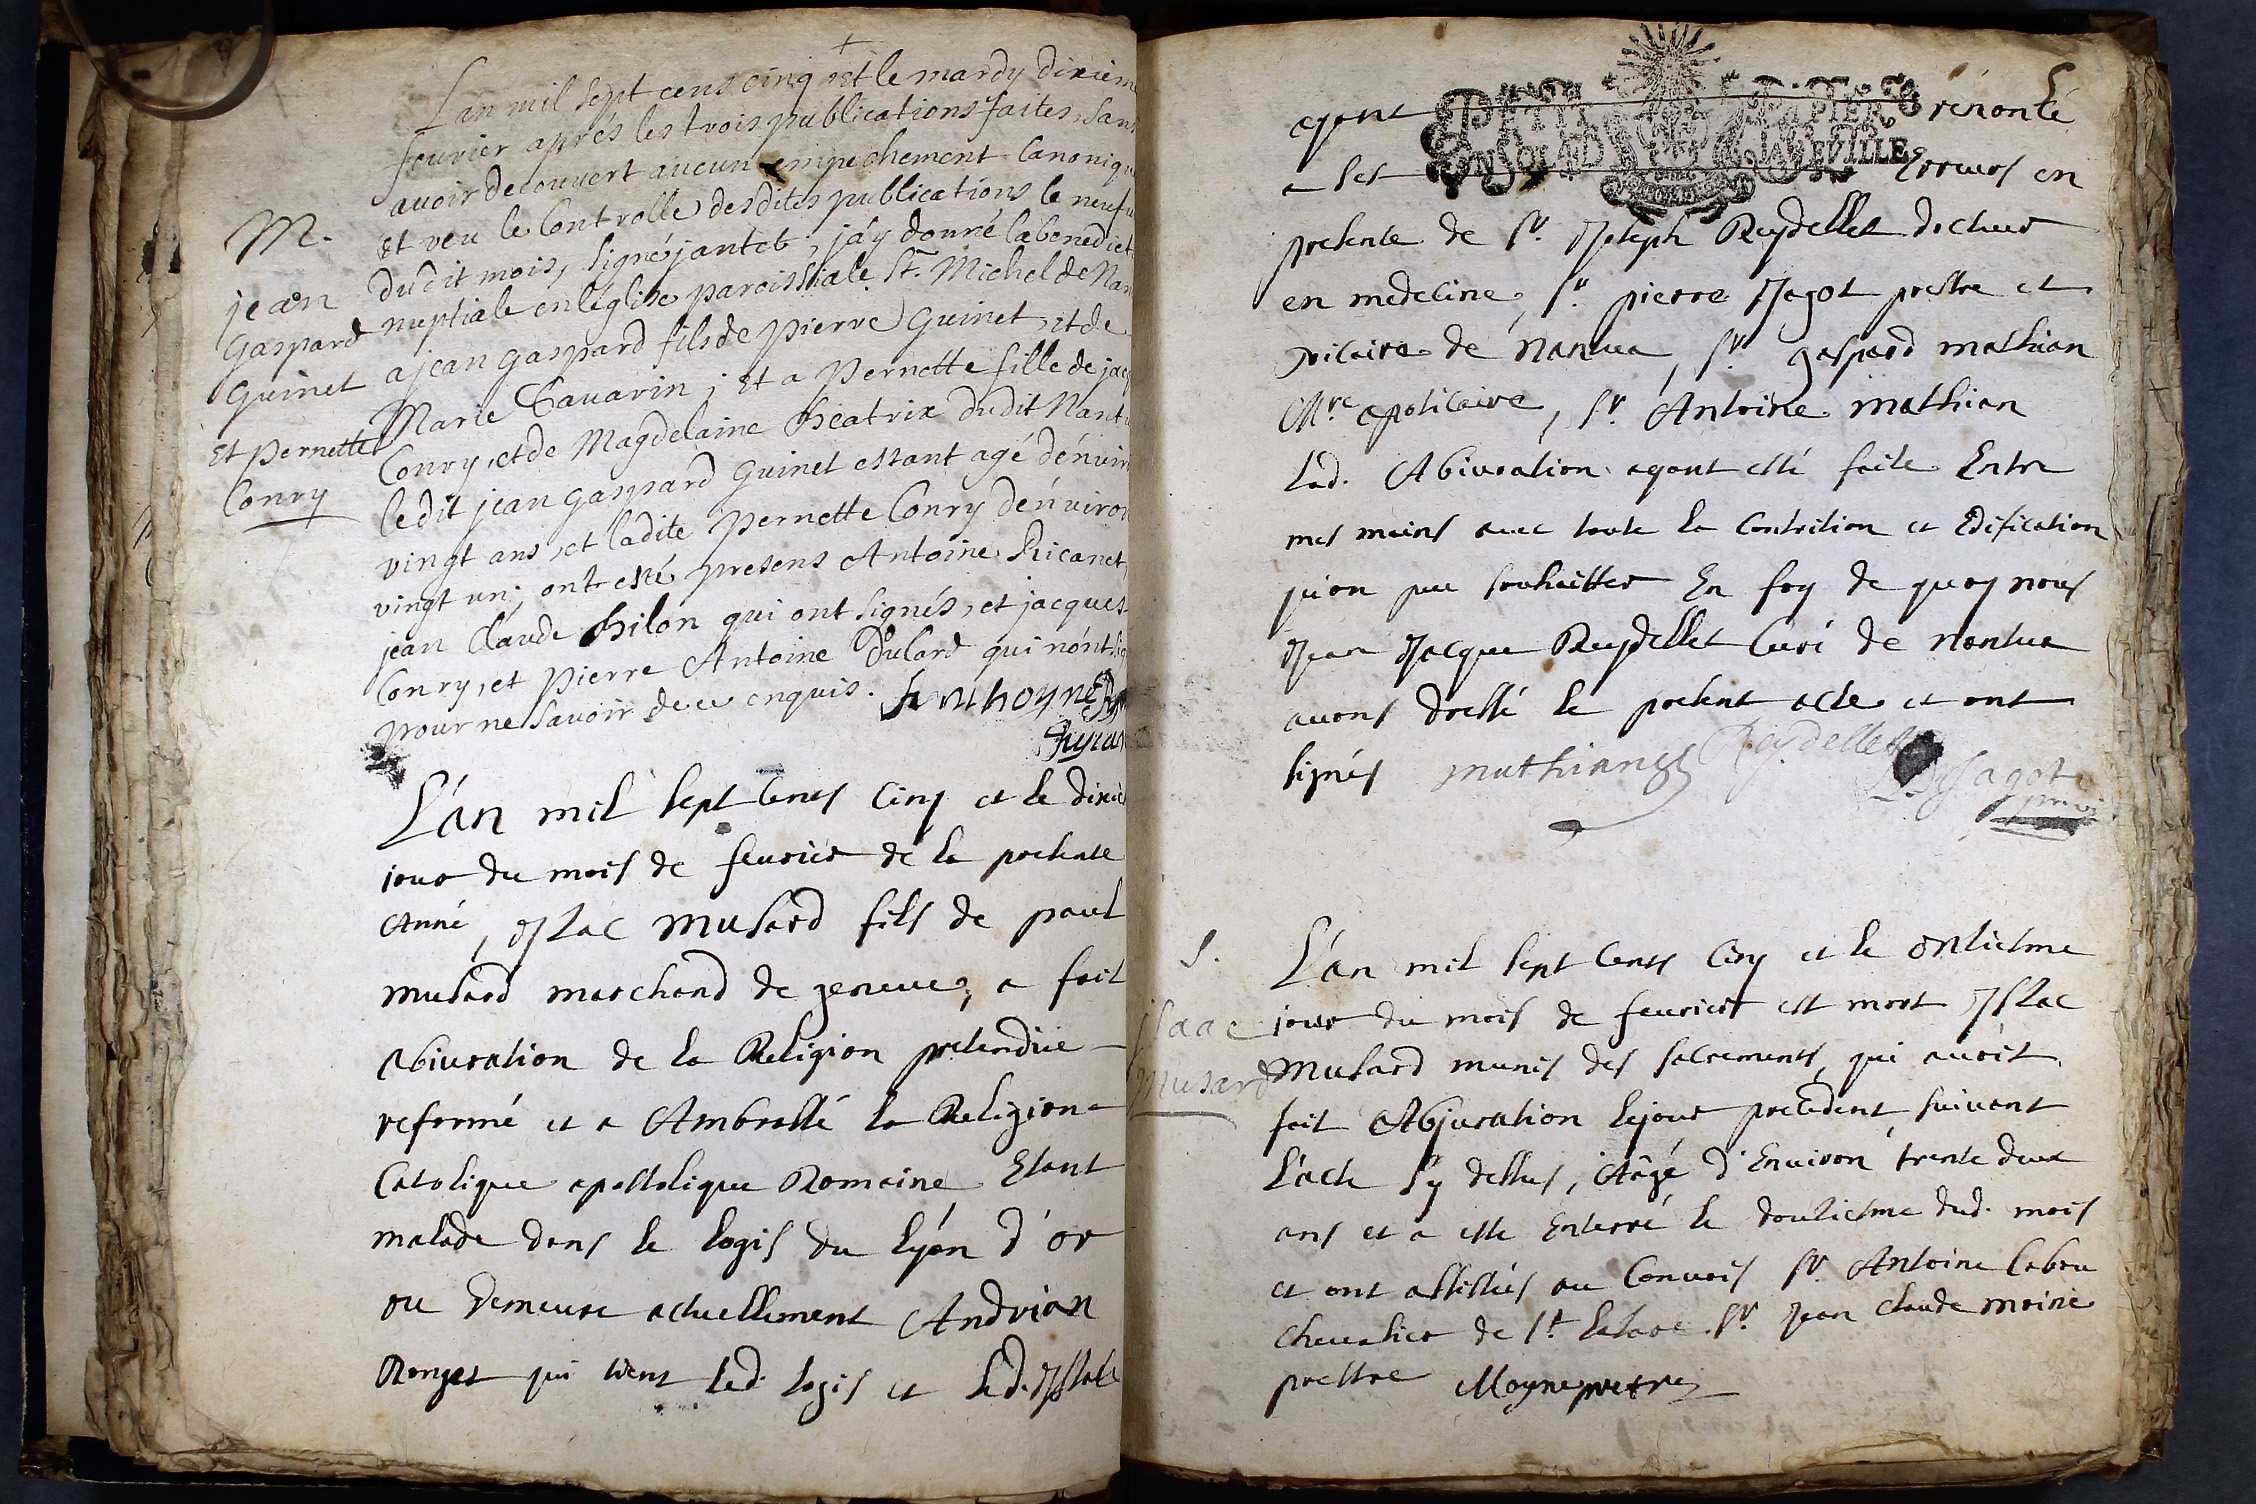 L'an mil sept cens cinq et le mardy dixiem
feuvier aprés les trois publications faites, sans
avoir decouvert aucun empechement Canonique
M. et veu le Controlle desdites publications le neufu
dudit mois, signé jantet, j'ay donné la benedict
jean nuptiale en l'église paroissiale St. Michel de Nan
Gaspard a jean gaspard fils de pierre Guinet, et de
Guinet Marie Savarin ; et a Pernette fille de jacq
Et Pernette Conry, et de Magdelaine Beatrix dudit Nantu
Conry ledit jean Gaspard Guinet estant agé d'énvir
vingt ans, et ladite Pernette Conry d'énviron
vingt un ; ont esté presens Antoine Ricanet,
jean Claude hilon qui ont signés, et jacques
Conry, et Pierre Antoine Dulard qui n'ónt sig
pour ne savoir de ce enquis. Anthoyne
L'án mil sept Cents Cinq et le dixiè
jour du mois de feurier de la presente
Anné, Isac Musard fils de paul
Musard marchand de geneue, a fait
abiuration de la Religion pretendüe
reformé et a Ambrassé la Religion
Catolique apostolique Romaine Etant
malade dans le logis du lyón d'or
ou demeure actuellement Andrian
Ronget qui tient led. logis et led. Isac
PETIT PAPIER
ayant rénonté
a ses Erreurs en
presente de Sr. Joseph Reydellet docteur
en medecine, Sr. pierre Jagot prestre et
vicaire de nantua, Sr. gaspard mathian
Mre. apoticaire, Sr. Antoine mathian
lad. Abiuration ayant esté faite Entre
mes mains auec toute la Contrition et Edification
qu'on peu souhaitter En foy de quoy nous
Jean Jacque Reydellet Curé de nantua
auons dressé le present acte et ont
signés mathian Reydellet Jagot
S. L'án mil sept Cents Cinq et le onziesme
isaac jour du mois de feurier est mort Isac
Musard Musard munis des sacrements, qui auoit
fait Abjuration le jour precedent suivant
l'acte cy dessus, Aâgé d'Enuiron trente deux
ans et a esté Enterré le douziesme dud. mois
et ont assistés au Conuois Sr. Antoine Cabou
cheualier de St. Lazare. Sr. Jean Claude moine
prestre Moyne prestre